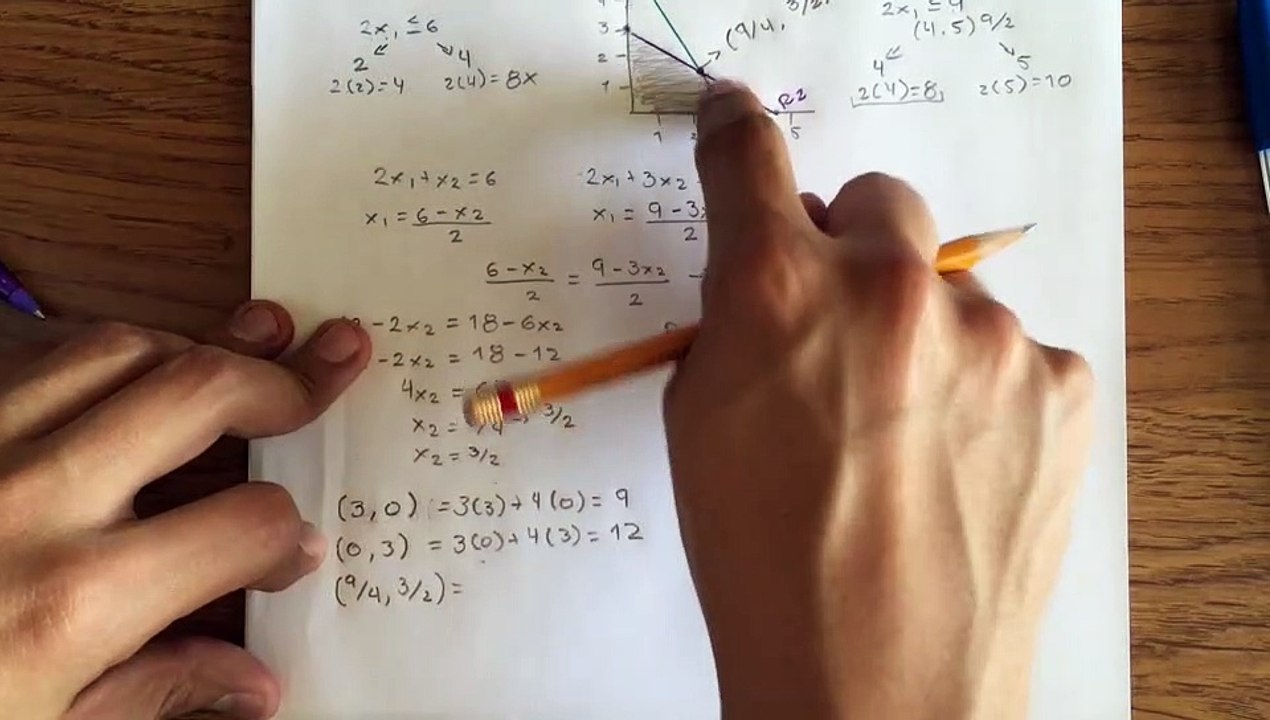 2x₁ ≤ 6
2 4
2(2)=4 2(4)=8x
3
2
1
1
5
(9/4, 3/2,
R2
2x₁ ≤ 9
(4.5) 9/2
4 5
2(4)=8 2(5)=10
2x₁+x₂=6 2x₁+3x₂
x₁ = 6-x₂ / 2 x₁ = 9-3 / 2
6-x₂ / 2 = 9-3x₂ / 2
-2x₂ = 18-6x₂
-2x₂ = 18-12
4x₂ =
x₂ = 3/2
x₂ = 3/2
(3,0) =3(3)+4(0)=9
(0,3) =3(0)+4(3)=12
(9/4, 3/2)=